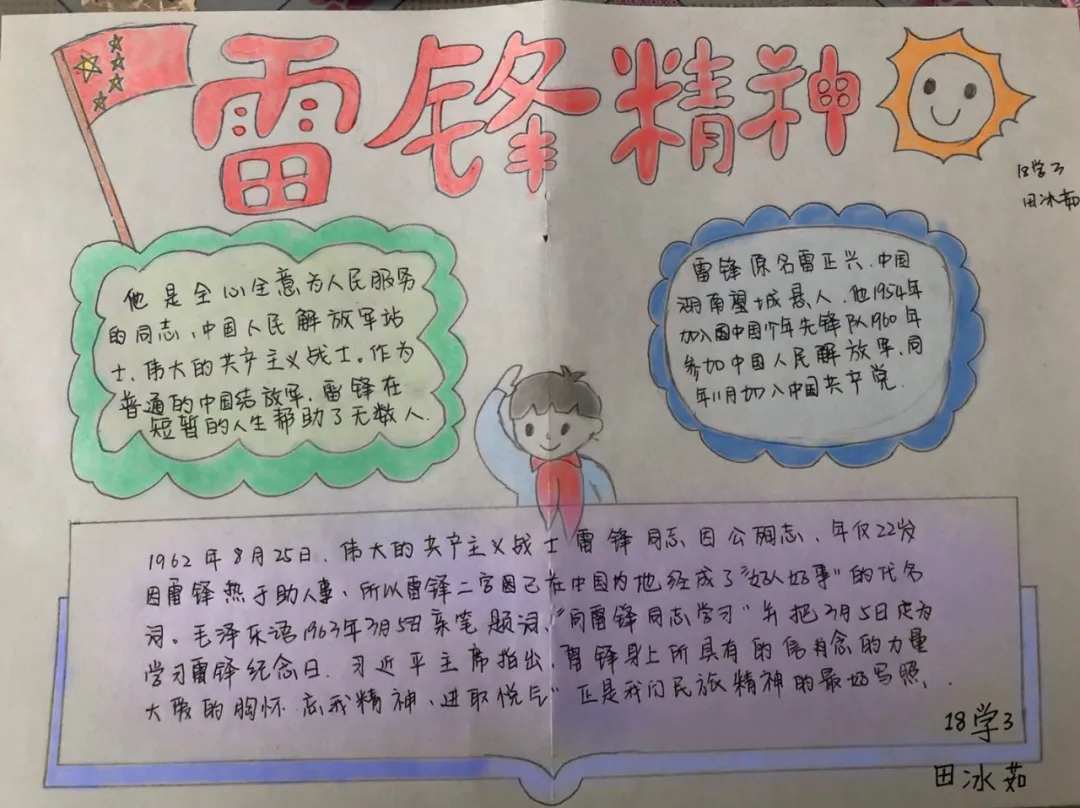 雷锋精神
18学3
田冰茹
他是全心全意为人民服务
的同志,中国人民解放军战
士,伟大的共产主义战士。作为
普通的中国结放军,雷锋在
短暂的人生帮助了无数人.
雷锋原名雷正兴.中国
湖南望城县人.他1954年
加入国中国少年先锋队1960年
参加中国人民解放军.同
年11月加入中国共产党.
1962年8月25日.伟大的共产主义战士雷锋同志因公殉志、年仅22岁
因雷锋热于助人事、所以雷锋二字因已在中国内地经成了"好人好事"的代名
词。毛泽东语1963年3月5日亲笔题词、"向雷锋同志学习"并把3月5日定为
学习雷锋纪念日.习近平主席指出,雷锋身上所具有的信有念的力量
大爱的胸怀.忘我精神、进取悦 "正是我们民族精神的最好写照.
18学3
田冰茹